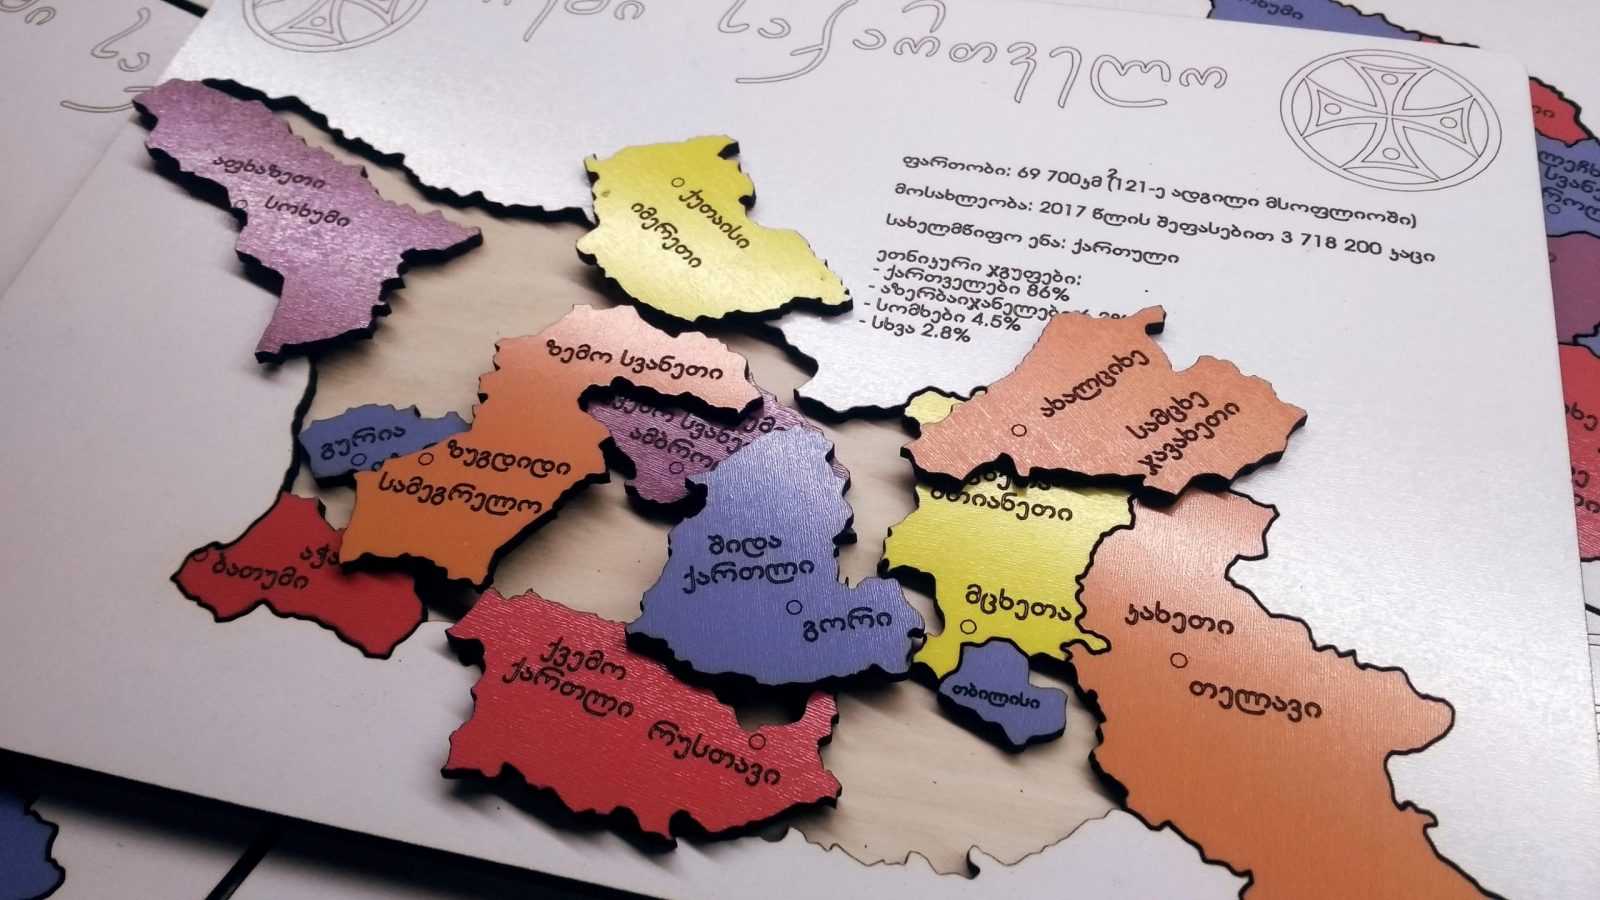 საქართველო
ფართობი: 69 700კმ² (121-ე ადგილი მსოფლიოში)
მოსახლეობა: 2017 წლის შეფასებით 3 718 200 კაცი
სახელმწიფო ენა: ქართული
ეთნიკური ჯგუფები:
- ქართველები 86%
- აზერბაიჯანელებ
- სომხები 4.5%
- სხვა 2.8%
აფხაზეთი
სოხუმი
ქუთაისი
იმერეთი
ზემო სვანეთი
ზუგდიდი
სამეგრელო
გურია
აჭა
ბათუმი
ახალციხე
სამცხე
ჯავახეთი
მთიანეთი
მცხეთა
შიდა
ქართლი
გორი
ქვემო
ქართლი
რუსთავი
თბილისი
კახეთი
თელავი